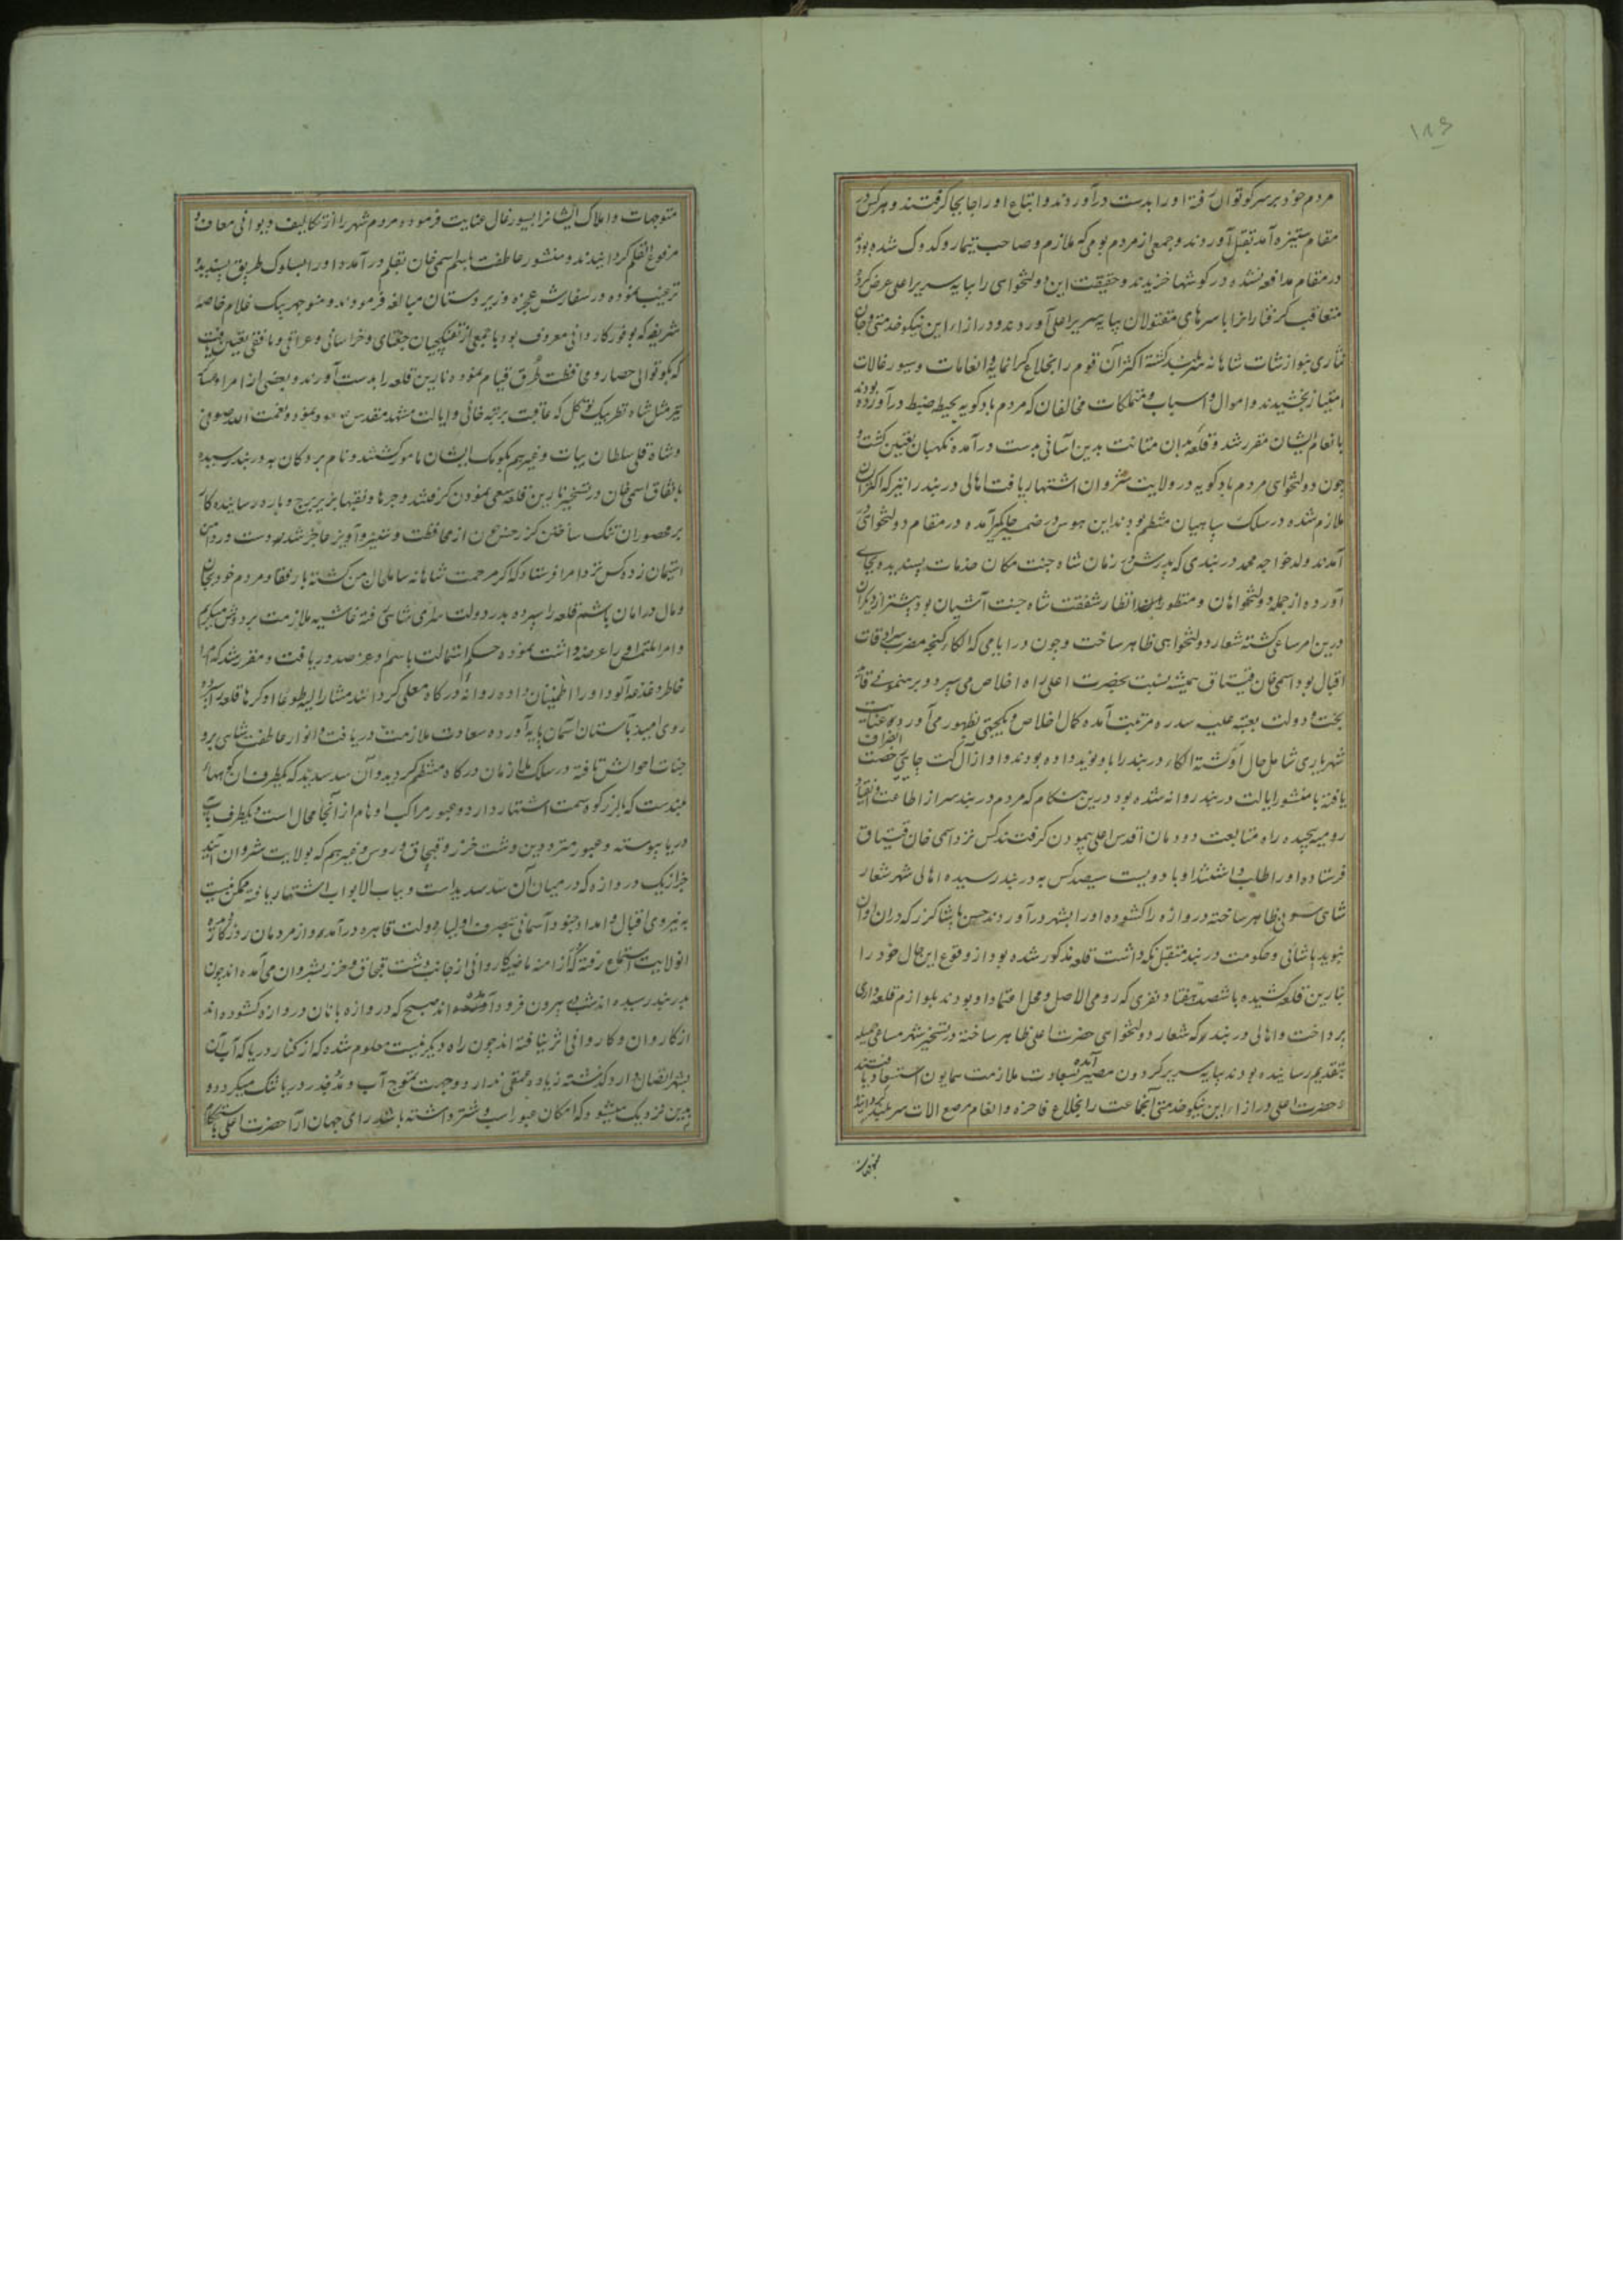 ۱۸۶
مردم خود بر سر کوتوال رفته او را بدست درآوردند و اتباع او را جابجا گرفتند و هر کس در
مقام ستیزه آمد بقتل آوردند و جمعی از مردم بومی که ملازم و صاحب تیمار و کدوک شده بودند
در مقام مدافعه نشده در گوشها خزیدند و حقیقت این دولتخواهی را بپایه سریر اعلی عرض کرده
متعاقب گرفتاران را با سرهای مقتولان بپایه سریر اعلی آوردند و در ازاء این نیکو خدمتی و جان
نثاری بنوازشات شاهانه سربلند گشته اکثر آن قوم را بخلاع گرانمایه و انعامات و سیورغالات
امتیاز بخشیدند و اموال و اسباب و متملکات مخالفان که مردم بادکوبه بحیطه ضبط درآورده بودند
بانعام ایشان مقرر شد و قلعه بدان متانت بدین آسانی بدست درآمده نگهبان تعیین گشت و
چون دولتخواهی مردم بادکوبه در ولایت شروان اشتهار یافت اهالی دربند را نیز که اکثر آن
ملازم شده در سلک سپاهیان منتظم بودند این هوس در ضمیر جایگیر آمده در مقام دولتخواهی
آمدند ولد خواجه محمد دربندی که پدرش در زمان شاه جنت مکان خدمات پسندیده بجای
آورده از جمله دولتخواهان و منظور انظار شفقت شاه جنت آشیان بود بیشتر از دیگران
درین امر ساعی گشته شعار دولتخواهی ظاهر ساخت و چون در ایامی که الکاء گنجه مضرب سرادقات
اقبال بود اسمی خان قیتاق همیشه نسبت بحضرت اعلی راه اخلاص می سپرد و برهنمونی قائد
بخت و دولت بعتبه علیه سدره مرتبت آمده کمال اخلاص و یکجهتی بظهور می آورد و عنایت
شهریاری شامل حال او گشته الکاء دربند را باو نوید داده بودند و او از آن رخصت انصراف
یافته با منشور ایالت دربند روانه شده بود درین هنگام که مردم دربند سر از اطاعت و انقیاد
رومیه پیچیده راه متابعت دودمان اقدس اعلی پیمودن گرفتند کس نزد اسمی خان قیتاق
فرستاده او را طلب داشتند او با دویست سیصد کس به دربند رسیده اهالی شهر شعار
شاهی سونی ظاهر ساخته دروازه را گشوده او را بشهر درآوردند حسن پاشا که در آن اوان
بنوید پاشائی و حکومت دربند متقبل نگهداشت قلعه مذکور شده بود از وقوع این حال خود را
بنارین قلعه کشیده با ششصد هفتاد نفری که رومی الاصل و محل اعتماد او بودند بلوازم قلعه داری
پرداخت و اهالی دربند که شعار دولتخواهی حضرت اعلی ظاهر ساخته در تسخیر شهر مساعی جمیله
بتقدیم رسانیده بودند بپایه سریر گردون مصیر آمده سعادت ملازمت همایون استسعاد یافتند
و حضرت اعلی در ازاء این نیکو خدمتی آنجماعت را بخلاع فاخره و انعام مرصع آلات سربلند گردانیده
متوجهات و املاک ایشان را بسیورغال عنایت فرموده مردم شهر را از تکالیف دیوانی معاف و
مرفوع القلم گردانیدند و منشور عاطفت باسم اسمی خان بقلم درآمد و او را بسلوک طریق پسندیده
ترغیب نموده در سفارش عجزه و زیردستان مبالغه فرمودند و منوچهر بیک غلام خاصه
شریفه که بوفور کاردانی معروف بود با جمعی از تفنگچیان جغتای و خراسانی و عراقی و بافقی تعیین یافت
که بکوتوالی حصار و محافظت طرق قیام نموده نارین قلعه را بدست آورند و بعضی از امراء عساکر
نیز مثل شاه نظر بیک توکل که عاقبت برتبه خانی و ایالت مشهد مقدس صعود نمود و نعمت الله صوفی
و شاه قلی سلطان بیات و غیرهم بکومک ایشان مامور گشتند و نام بردگان به دربند رسیده
باتفاق اسمی خان در تسخیر نارین قلعه سعی نمودن گرفتند و جرها و نقبها بزیر برج و باره رسانیده کار
بر محصوران تنگ ساختند حسن از محافظت و ستیز و آویز عاجز شده دست در دامن
استیمان زده کس نزد امرا فرستاد که اگر مرحمت شاهانه شامل حال من گشته با رفقا و مردم خود بجان
و مال در امان باشم قلعه را سپرده بدر دولت سرای شاهی رفته غاشیه ملازمت بر دوش میگیرم
و امرا ملتمس او را عرضه داشت نموده حکم استمالت باسم او عز صدور یافت و مقرر شد که امرا
خاطر دغدغه آلود او را اطمینان داده روانه درگاه معلی گردانند مشارالیه طوعا او کرها قلعه سپرده
روی امید بآستان آسمان پایه آورده سعادت ملازمت دریافت و انوار عاطفت شاهی بر و
جنات احوالش تافته در سلک ملازمان درگاه منتظم گردید و آن سد سدید که یکطرف آن کوههای
بلندست که بالبرز کوه سمت اشتهار دارد و عبور مراکب اوهام از آنجا محال است و یکطرف بآب
دریا پیوسته و عبور مترددین دشت خزر و قبچاق و روس و غیرهم که بولایت شروان آیند
جز از یک دروازه که در میان آن سد سدید است و بباب الابواب اشتهار یافته ممکن نیست
به نیروی اقبال و امداد جنود آسمانی بتصرف اولیاء دولت قاهره درآمد و از مردمان روزگار دیده
آنولایت استماع رفته که در ازمنه ماضیه کاروانی از جانب دشت قبچاق و خزر بشروان می آمده اند چون
بدربند رسیده اند شب بیرون فرود آمده اند صبح که دروازه بانان دروازه گشوده اند
از کاروان و کاروانی اثر نیافته اند چون راه دیگر نیست معلوم شده که از کنار دریا که آب آن
بشهر اتصال دارد گذشته زیاده عمقی ندارد و جهت تموج آب و مد و جزر دریا تنگ میگردد و
بدین نزدیک میشود که امکان عبور اسب و شتر داشته باشد رای جهان آرا حضرت اعلی باستحکام